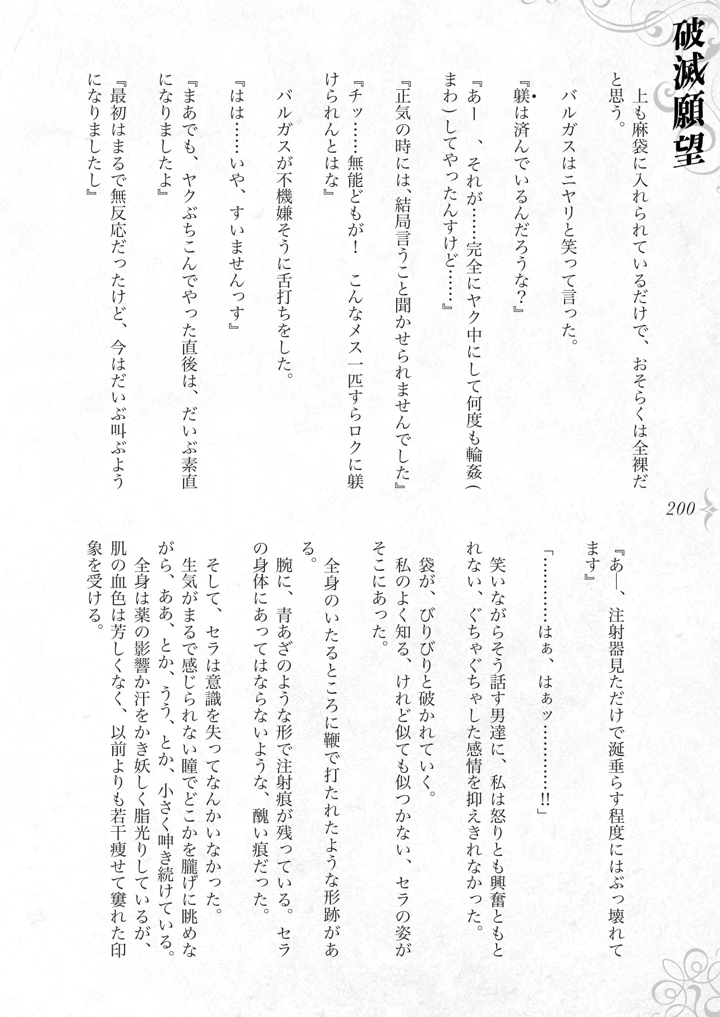 破滅願望
上も麻袋に入れられているだけで、おそらくは全裸だ
と思う。
バルガスはニヤリと笑って言った。
『躾は済んでいるんだろうな？』
『あー　、それが……完全にヤク中にして何度も輪姦(
まわ)してやったんすけど……』
『正気の時には、結局言うこと聞かせられませんでした』
『チッ……無能どもが！　こんなメス一匹すらロクに躾
けられんとはな』
バルガスが不機嫌そうに舌打ちをした。
『はは……いや、すいませんっす』
『まあでも、ヤクぶちこんでやった直後は、だいぶ素直
になりましたよ』
『最初はまるで無反応だったけど、今はだいぶ叫ぶよう
になりましたし』
200
『あ―、注射器見ただけで涎垂らす程度にはぶっ壊れて
ます』
「…………はぁ、はぁッ…………!!」
笑いながらそう話す男達に、私は怒りとも興奮ともと
れない、ぐちゃぐちゃした感情を抑えきれなかった。
袋が、びりびりと破かれていく。
私のよく知る、けれど似ても似つかない、セラの姿が
そこにあった。
全身のいたるところに鞭で打たれたような形跡があ
る。
腕に、青あざのような形で注射痕が残っている。セラ
の身体にあってはならないような、醜い痕だった。
そして、セラは意識を失ってなんかいなかった。
生気がまるで感じられない瞳でどこかを朧げに眺めな
がら、ああ、とか、うう、とか、小さく呻き続けている。
全身は薬の影響か汗をかき妖しく脂光りしているが、
肌の血色は芳しくなく、以前よりも若干痩せて窶れた印
象を受ける。